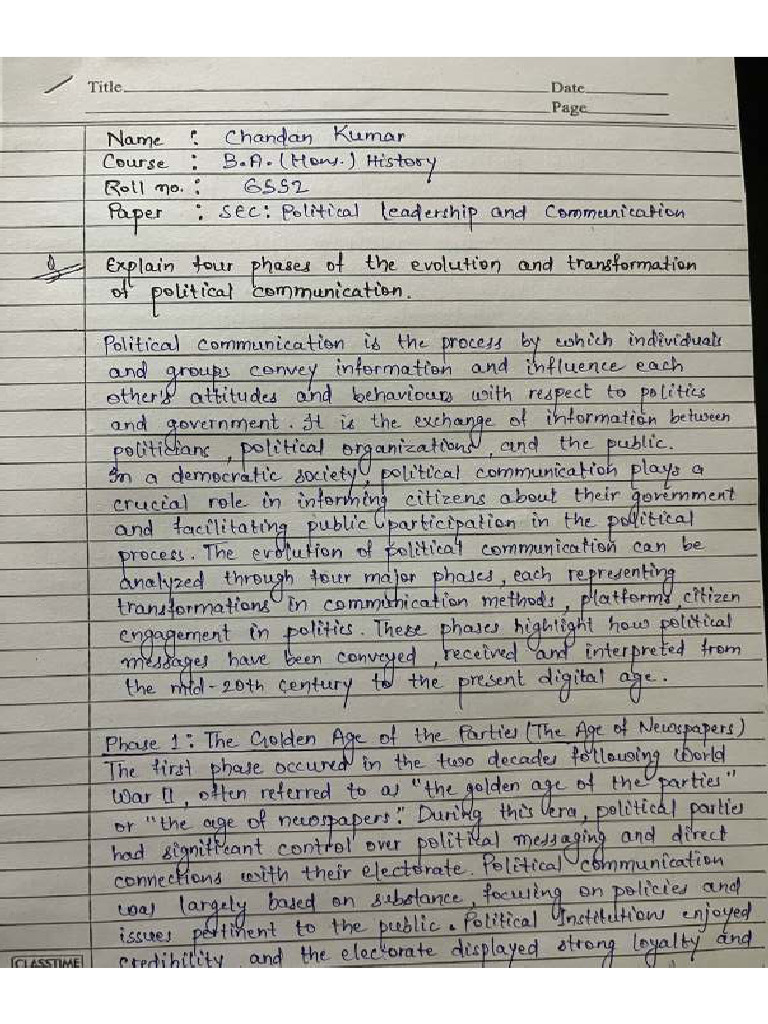 Title
Date
Page
Name : Chandan Kumar
Course : B.A. (Hons.) History
Roll no. : 6552
Paper : SEC: Political leadership and Communication
Explain four phases of the evolution and transformation
of political communication.
Political communication is the process by which individuals
and groups convey information and influence each
other's attitudes and behaviours with respect to politics
and government. It is the exchange of information between
politicians, political organizations, and the public.
In a democratic society, political communication plays a
crucial role in informing citizens about their government
and facilitating public participation in the political
process. The evolution of political communication can be
analyzed through four major phases, each representing
transformations in communication methods, platforms, citizen
engagement in politics. These phases highlight how political
messages have been conveyed, received and interpreted from
the mid-20th century to the present digital age.
Phase 1: The Golden Age of the Parties (The Age of Newspapers)
The first phase occured in the two decades following World
War II, often referred to as "the golden age of the parties"
or "the age of newspapers." During this era, political parties
had significant control over political messaging and direct
connections with their electorate. Political communication
was largely based on substance, focusing on policies and
issues pertinent to the public. Political Institutions enjoyed
credibility, and the electorate displayed strong loyalty and
CLASSTIME